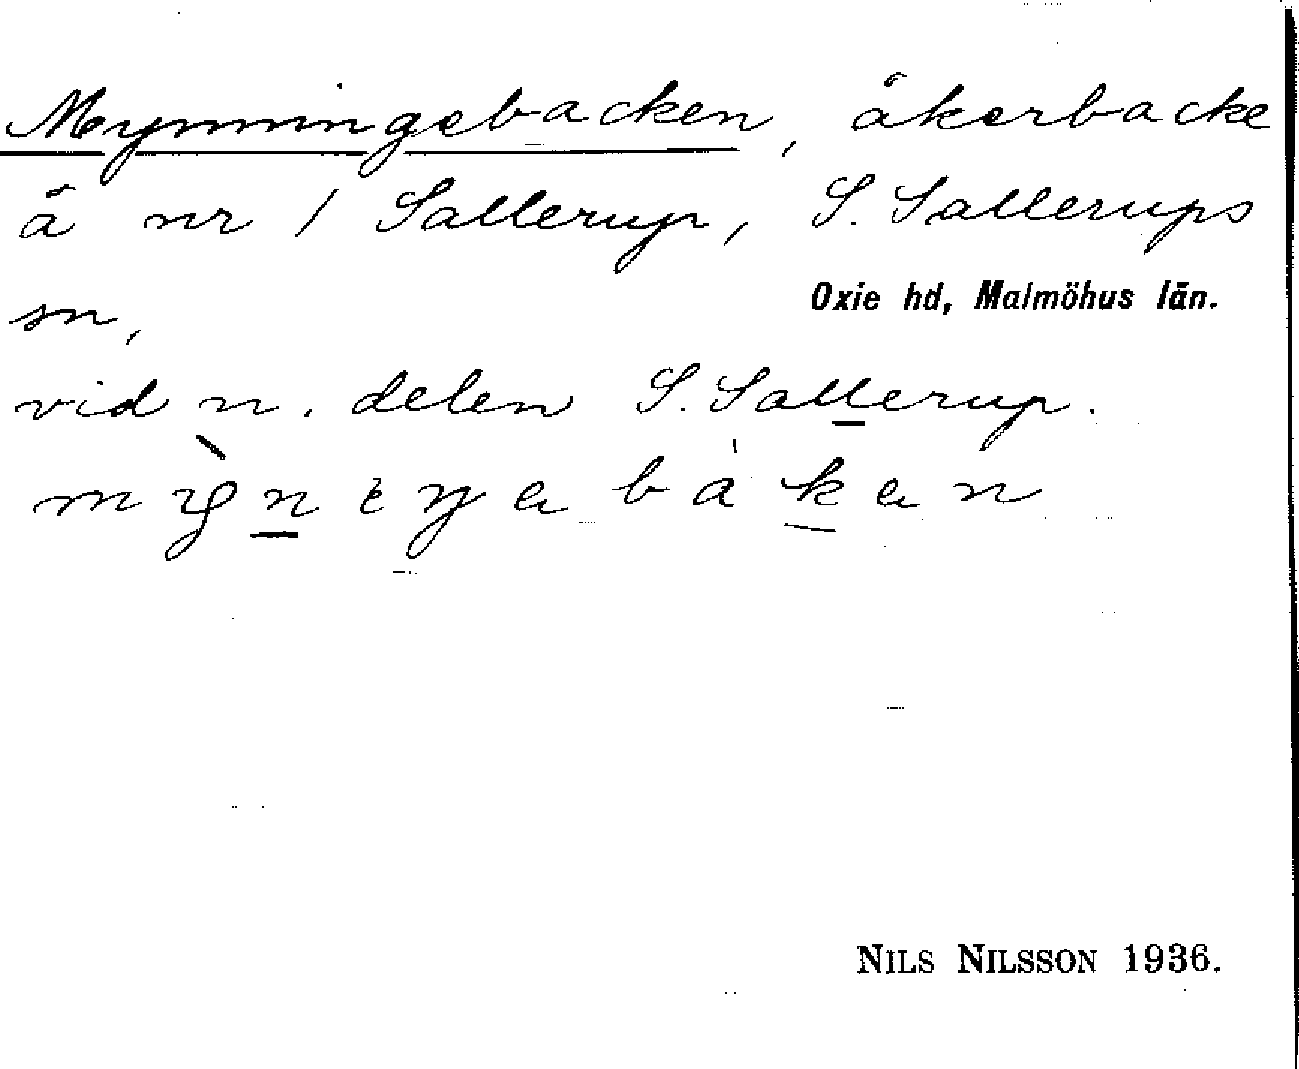 Mynningebacken, åkerbacke
å nr 1 Sallerup, S. Sallerups
sn,
Oxie hd, Malmöhus län.
vid n. delen S. Sallerup.
NILS NILSSON 1936.